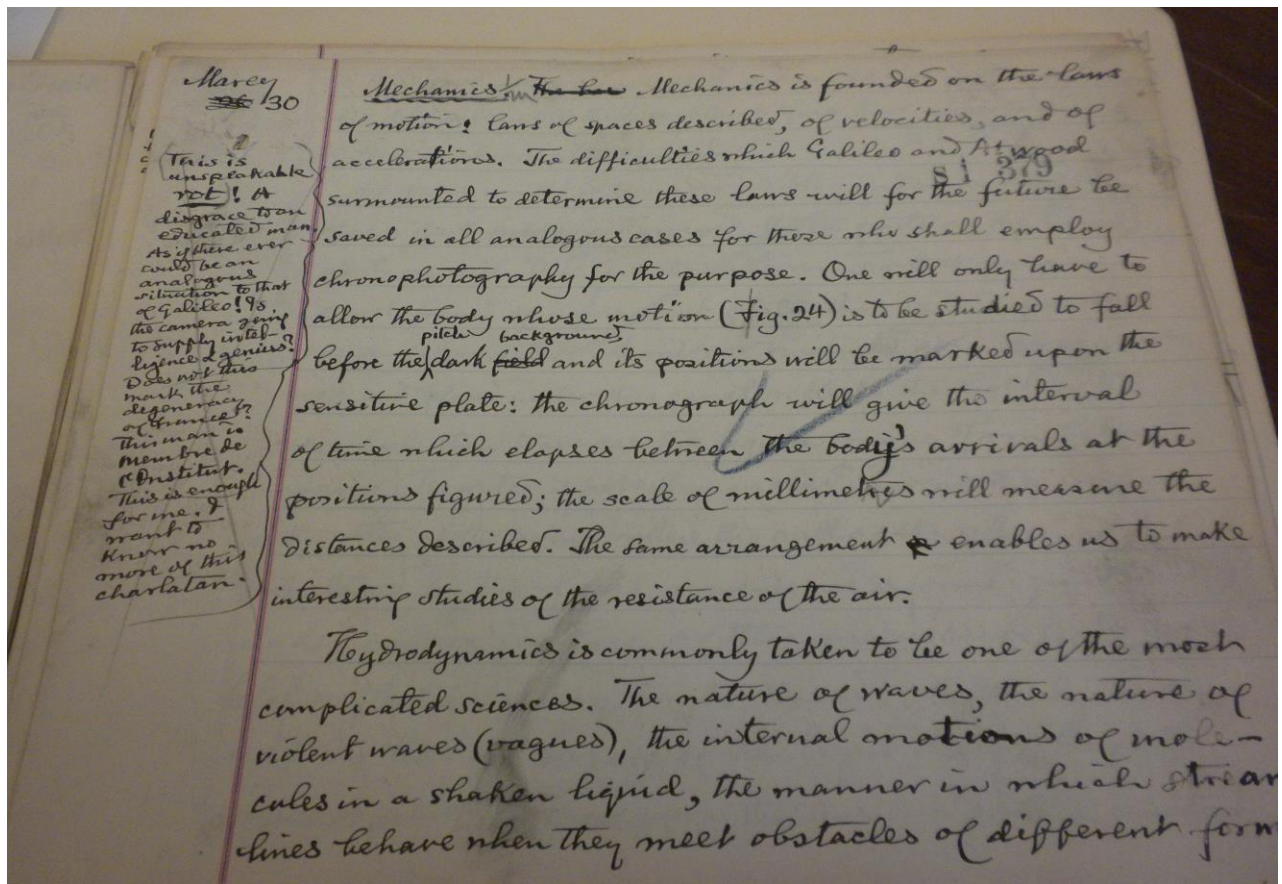 Marey
30
(This is
unspeakable
rot! A
disgrace to an
educated man.
As if there ever
could be an
analogous
situation to that
of Galileo! Is
the camera going
to supply intel-
ligence & genius?
Does not this
mark the
degeneracy
of France?
This man is
Membre de
l'Institut.
This is enough
for me. I
want to
know no
more of this
charlatan.
Mechanics. Mechanics is founded on the laws
of motion: laws of spaces described, of velocities, and of
accelerations. The difficulties which Galileo and Atwood
S1 379
surmounted to determine these laws will for the future be
saved in all analogous cases for those who shall employ
chronophotography for the purpose. One will only have to
allow the body whose motion (Fig. 24) is to be studied to fall
pitch background
before the dark field and its positions will be marked upon the
sensitive plate: the chronograph will give the interval
of time which elapses between the body's arrivals at the
positions figured; the scale of millimetres will measure the
distances described. The same arrangement enables us to make
interesting studies of the resistance of the air.
Hydrodynamics is commonly taken to be one of the most
complicated sciences. The nature of waves, the nature of
violent waves (vagues), the internal motions of mole-
cules in a shaken liquid, the manner in which strea
lines behave when they meet obstacles of different form